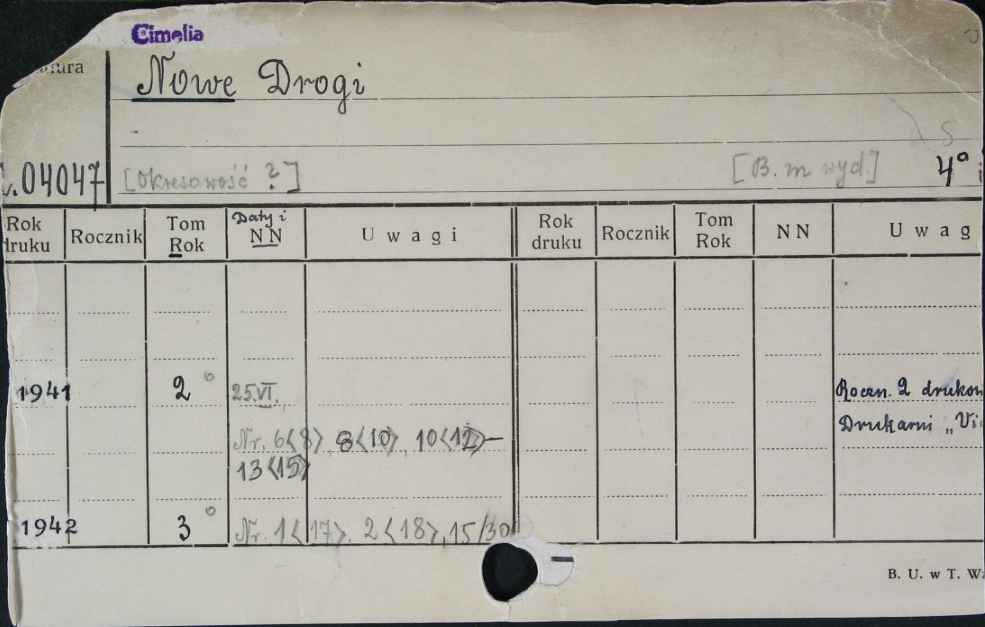 Cimelia
Nowe Drogi
04047 [Okresowość ?] [B. m wyd.] 4°
Rok druku Rocznik Tom Rok Daty i NN Uwagi Rok druku Rocznik Tom Rok NN Uwag
1941 2° 25.VI. Roczn. 2 drukow
Nr. 6<8>, 8<10>, 10<12>- Drukarni „Vi
13<15>
1942 3° Nr. 1<17>. 2<18>, 15/30
B. U. w T.